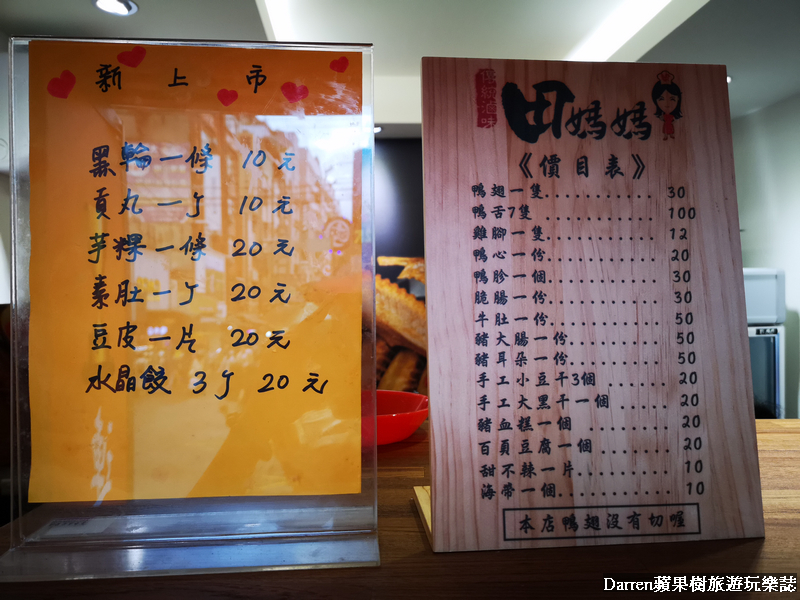 新上市
黑輪一條 10元
貢丸一J 10元
芋粿一條 20元
素肚一J 20元
豆皮一片 20元
水晶餃 3J 20元
滷味
田媽媽
《價目表》
鴨翅一隻............. 30
鴨舌7隻 ............. 100
雞腳一隻............. 12
鴨心一份............. 20
鴨胗一個............. 30
脆腸一份............. 30
牛肚一份............. 50
豬大腸一份........... 50
豬耳朵一份........... 50
手工小豆干3個....... 20
手工大黑干一個 ...... 20
豬血糕一個........... 20
百頁豆腐一個 ........ 20
甜不辣一片........... 10
海帶一個............. 10
本店鴨翅沒有切喔
Darren蘋果樹旅遊玩樂誌